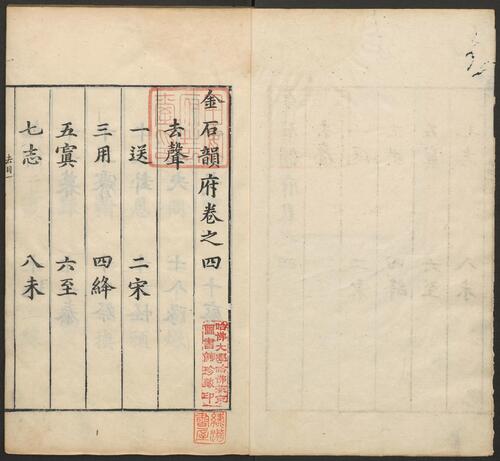 金石韻府卷之四
去聲
一送 二宋
三用 四絳
五寘 六至
七志 八未
去目一
哈佛大學哈佛燕京
圖書館珍藏印